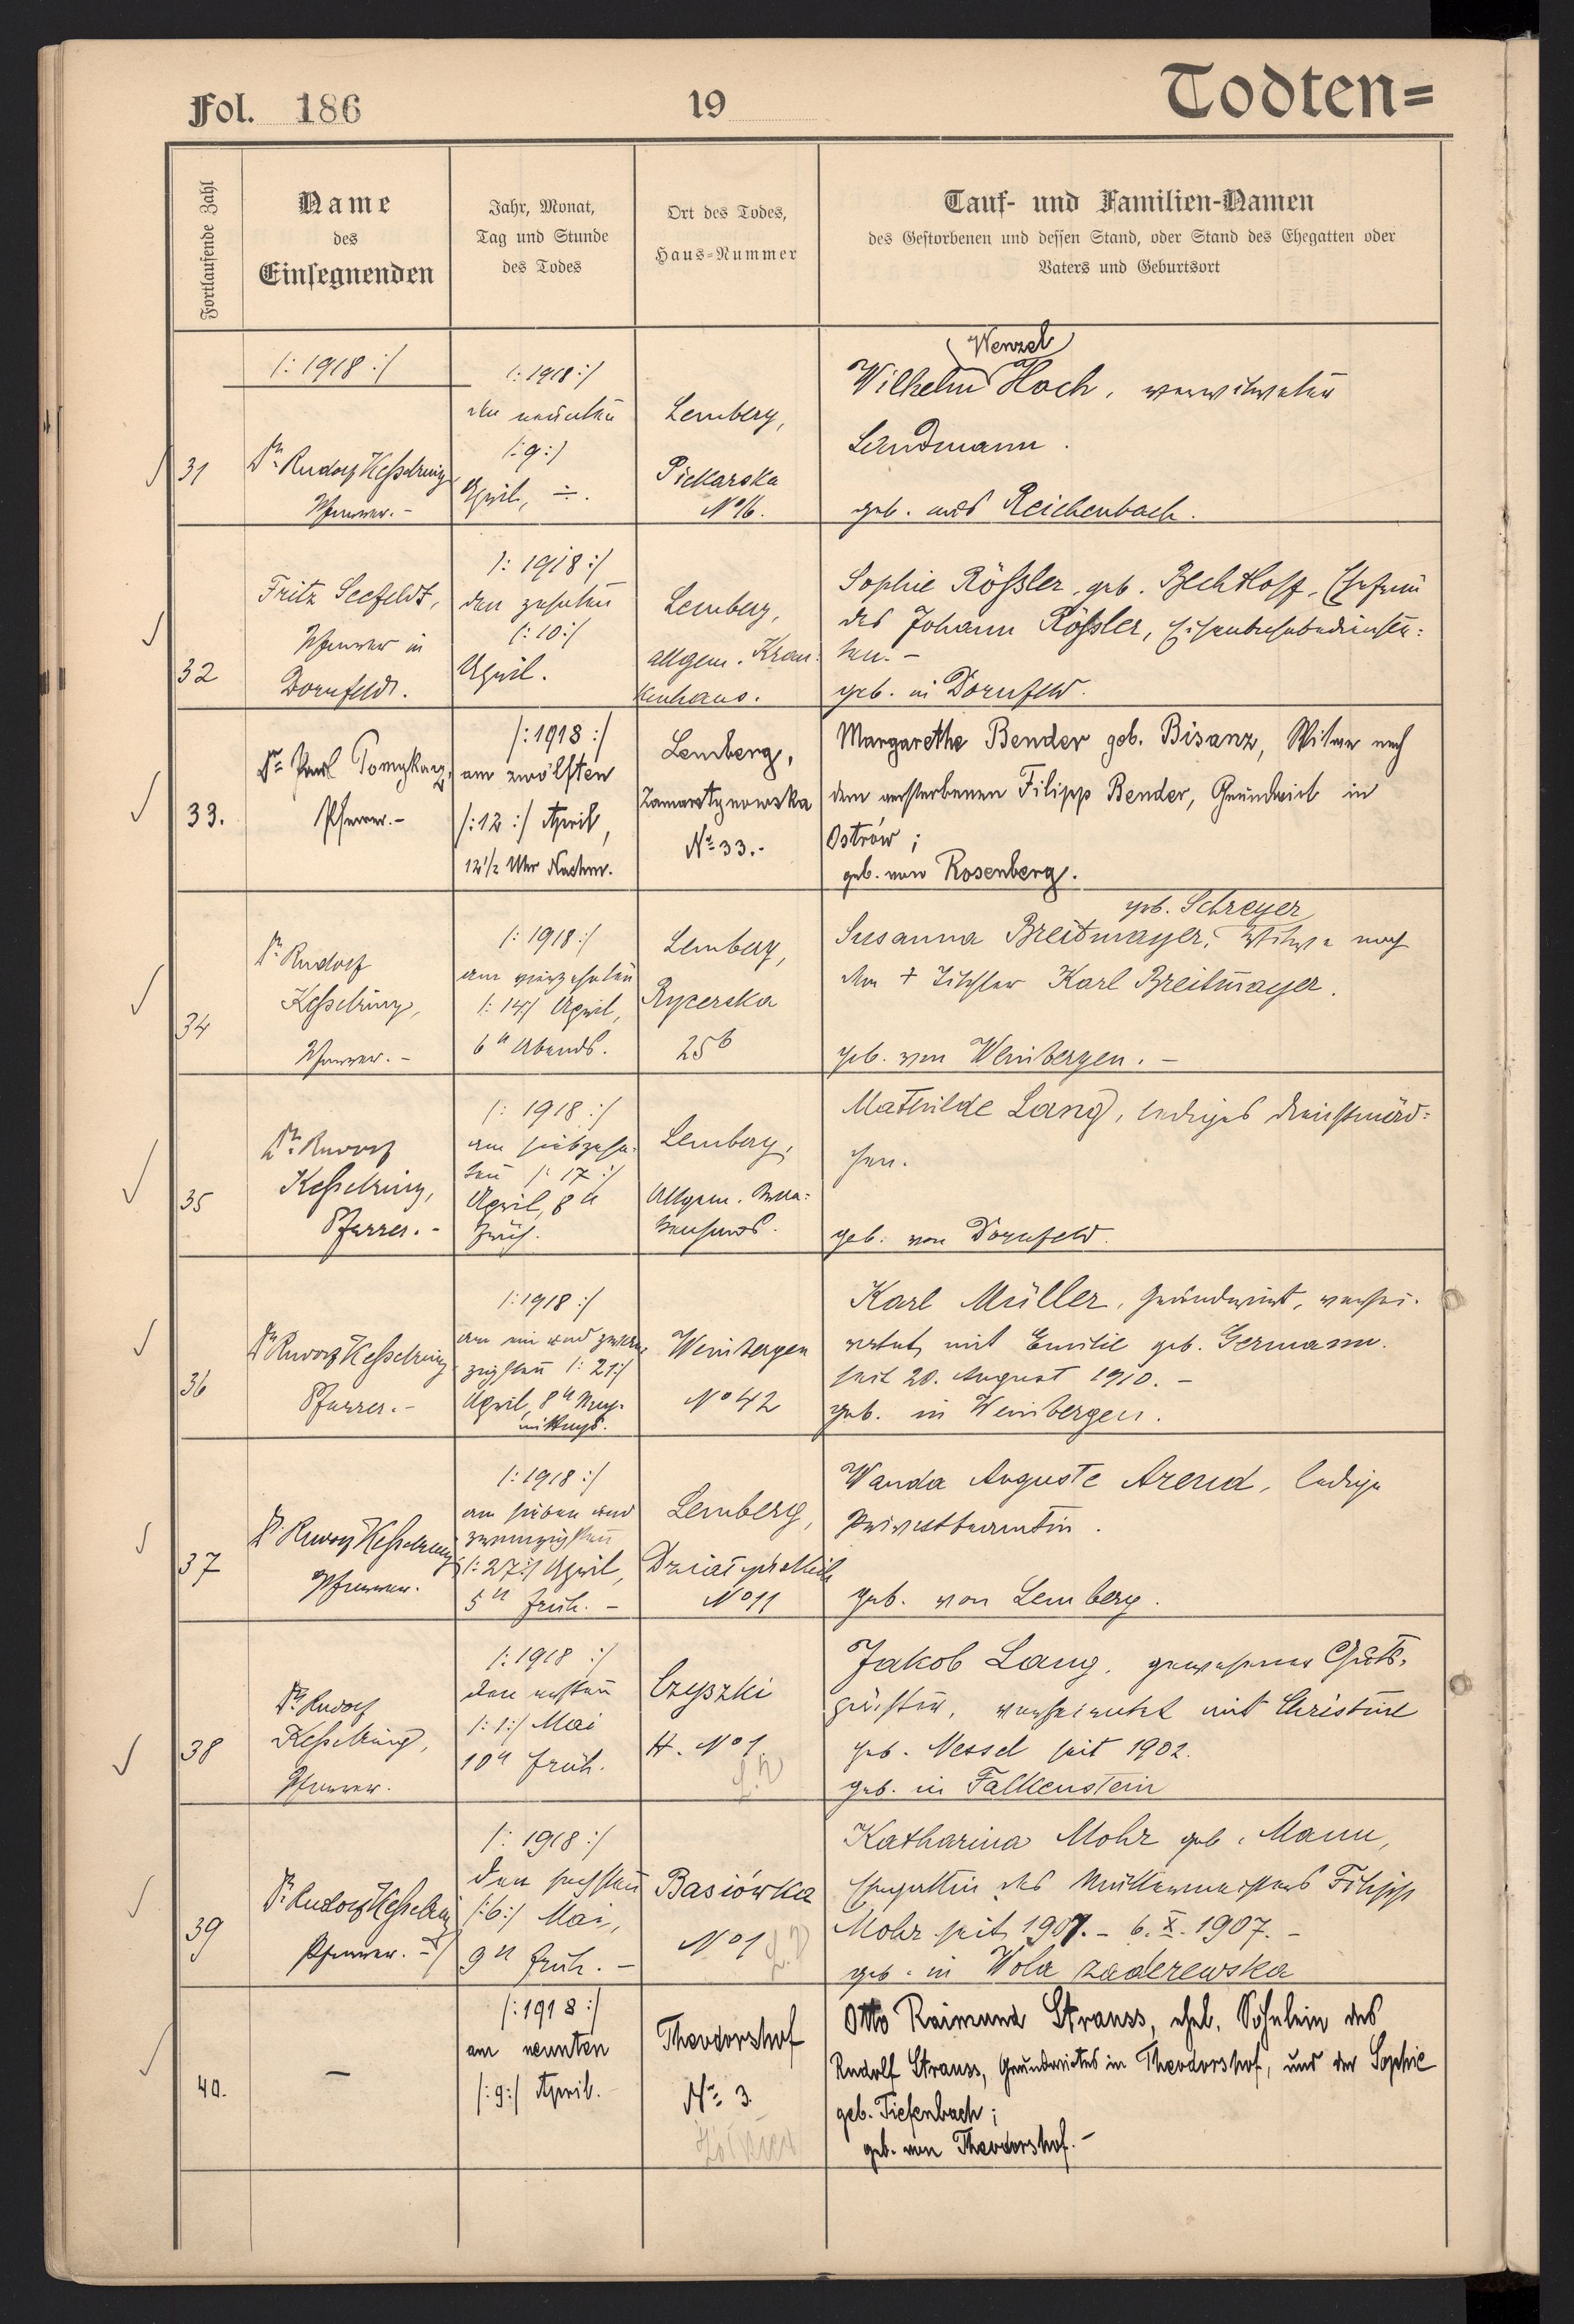 Fol. 186
19
Todten=
Fortlaufende Zahl
Name
des
Einsegnenden
Jahr, Monat,
Tag und Stunde
des Todes
Ort des Todes,
Haus=Nummer
Tauf- und Familien-Namen
des Gestorbenen und dessen Stand, oder Stand des Ehegatten oder
Vaters und Geburtsort
31
/: 1918 :/
Dr. Rudolf Kesselring
Pfarrer.-
/: 1918 :/
den neunten
/: 9 :/
April, ÷.
Lemberg,
Piekarska
No 16.
Wenzel
Wilhelm Hoch, verwitweter
Landmann.
geb. aus Reichenbach.
32
Fritz Seefeldt,
Pfarrer in
Dornfeld.
/: 1918 :/
den zehnten
/: 10 :/
April.
Lemberg,
allgem. Kran:
kenhaus.
Sophie Rößler, geb. Bechtloff, Ehefrau
des Johann Rößler, Eisenbahnbediensten:
ten.-
geb. in Dornfeld.
33.
Dr. Paul
Pfarrer.-
/: 1918 :/
am zwölften
/: 12 :/ April,
12 1/2 Uhr Nachm.
Lemberg,
Zamarstynowska
No 33.-
Margarethe Bender geb. Bisanz, Witwe nach
dem verstorbenen Filipp Bender, Grundwirt in
Ostrów;
geb. von Rosenberg.
34
Dr. Rudolf
Kesselring,
Pfarrer.-
/: 1918 :/
am vierzehnten
/: 14 :/ April,
6 h Abends.
Lemberg,
Rycerska
25 b
geb. Schreyer
Susanna Breitmayer, Witwe nach
dem † Tischler Karl Breitmayer.
geb. von Weinbergen.-
35
Dr. Rudolf
Kesselring,
Pfarrer.-
/: 1918 :/
am siebzehn-
ten /: 17 :/
April, 8 h
früh.
Lemberg,
Allgem. Kran:
kenhaus.
Mathilde Lang, lediges Dienstmäd:
chen.
geb. von Dornfeld.
36
Dr. Rudolf Kesselring
Pfarrer.-
/: 1918 :/
am ein und zwan
zigsten /: 21 :/
April, 8 h Nach-
mittags.
Weinbergen
No 42
Karl Müller, Grundwirt, verhei-
ratet mit Emilie geb. Germann.
seit 20. August 1910.-
geb. in Weinbergen.
37
Dr. Rudolf Kesselring
Pfarrer.
/: 1918 :/
am sieben und
zwanzigsten
/: 27 :/ April,
5 h früh.-
Lemberg,
No 11
Wanda Auguste Arend, ledige
Privatbeamtin.
geb. von Lemberg.
38
Dr. Rudolf
Kesselring,
Pfarrer.
/: 1918 :/
den ersten
/: 1 :/ Mai
10 h früh.
Czyszki
H. No 1.
Jakob Lang, gewesener Guts-
pächter, verheiratet mit Christine
geb. Nessel seit 1902.
geb. in Falkenstein
39
Dr. Rudolf Kesselring
Pfarrer.
/: 1918 :/
den sechsten
/: 6 :/ Mai,
9 h früh.-
Basiówka
No 1
Katharina Mohr geb. Mann,
Ehegattin des Müllermeisters Filipp
Mohr seit 1907.- 6. X. 1907.-
geb. in Wola zaderewska
40.
-
/: 1918 :/
am neunten
/: 9 :/ April.
Theodorshof
No 3.
Otto Raimund Strauss, ehel. Söhnlein des
Rudolf Strauss, Grundwirtes in Theodorshof, und der Sophie
geb. Tiefenbach;
geb. von Theodorshof.-